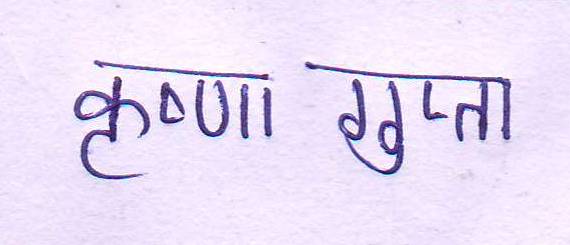 कृष्णा गुप्ता